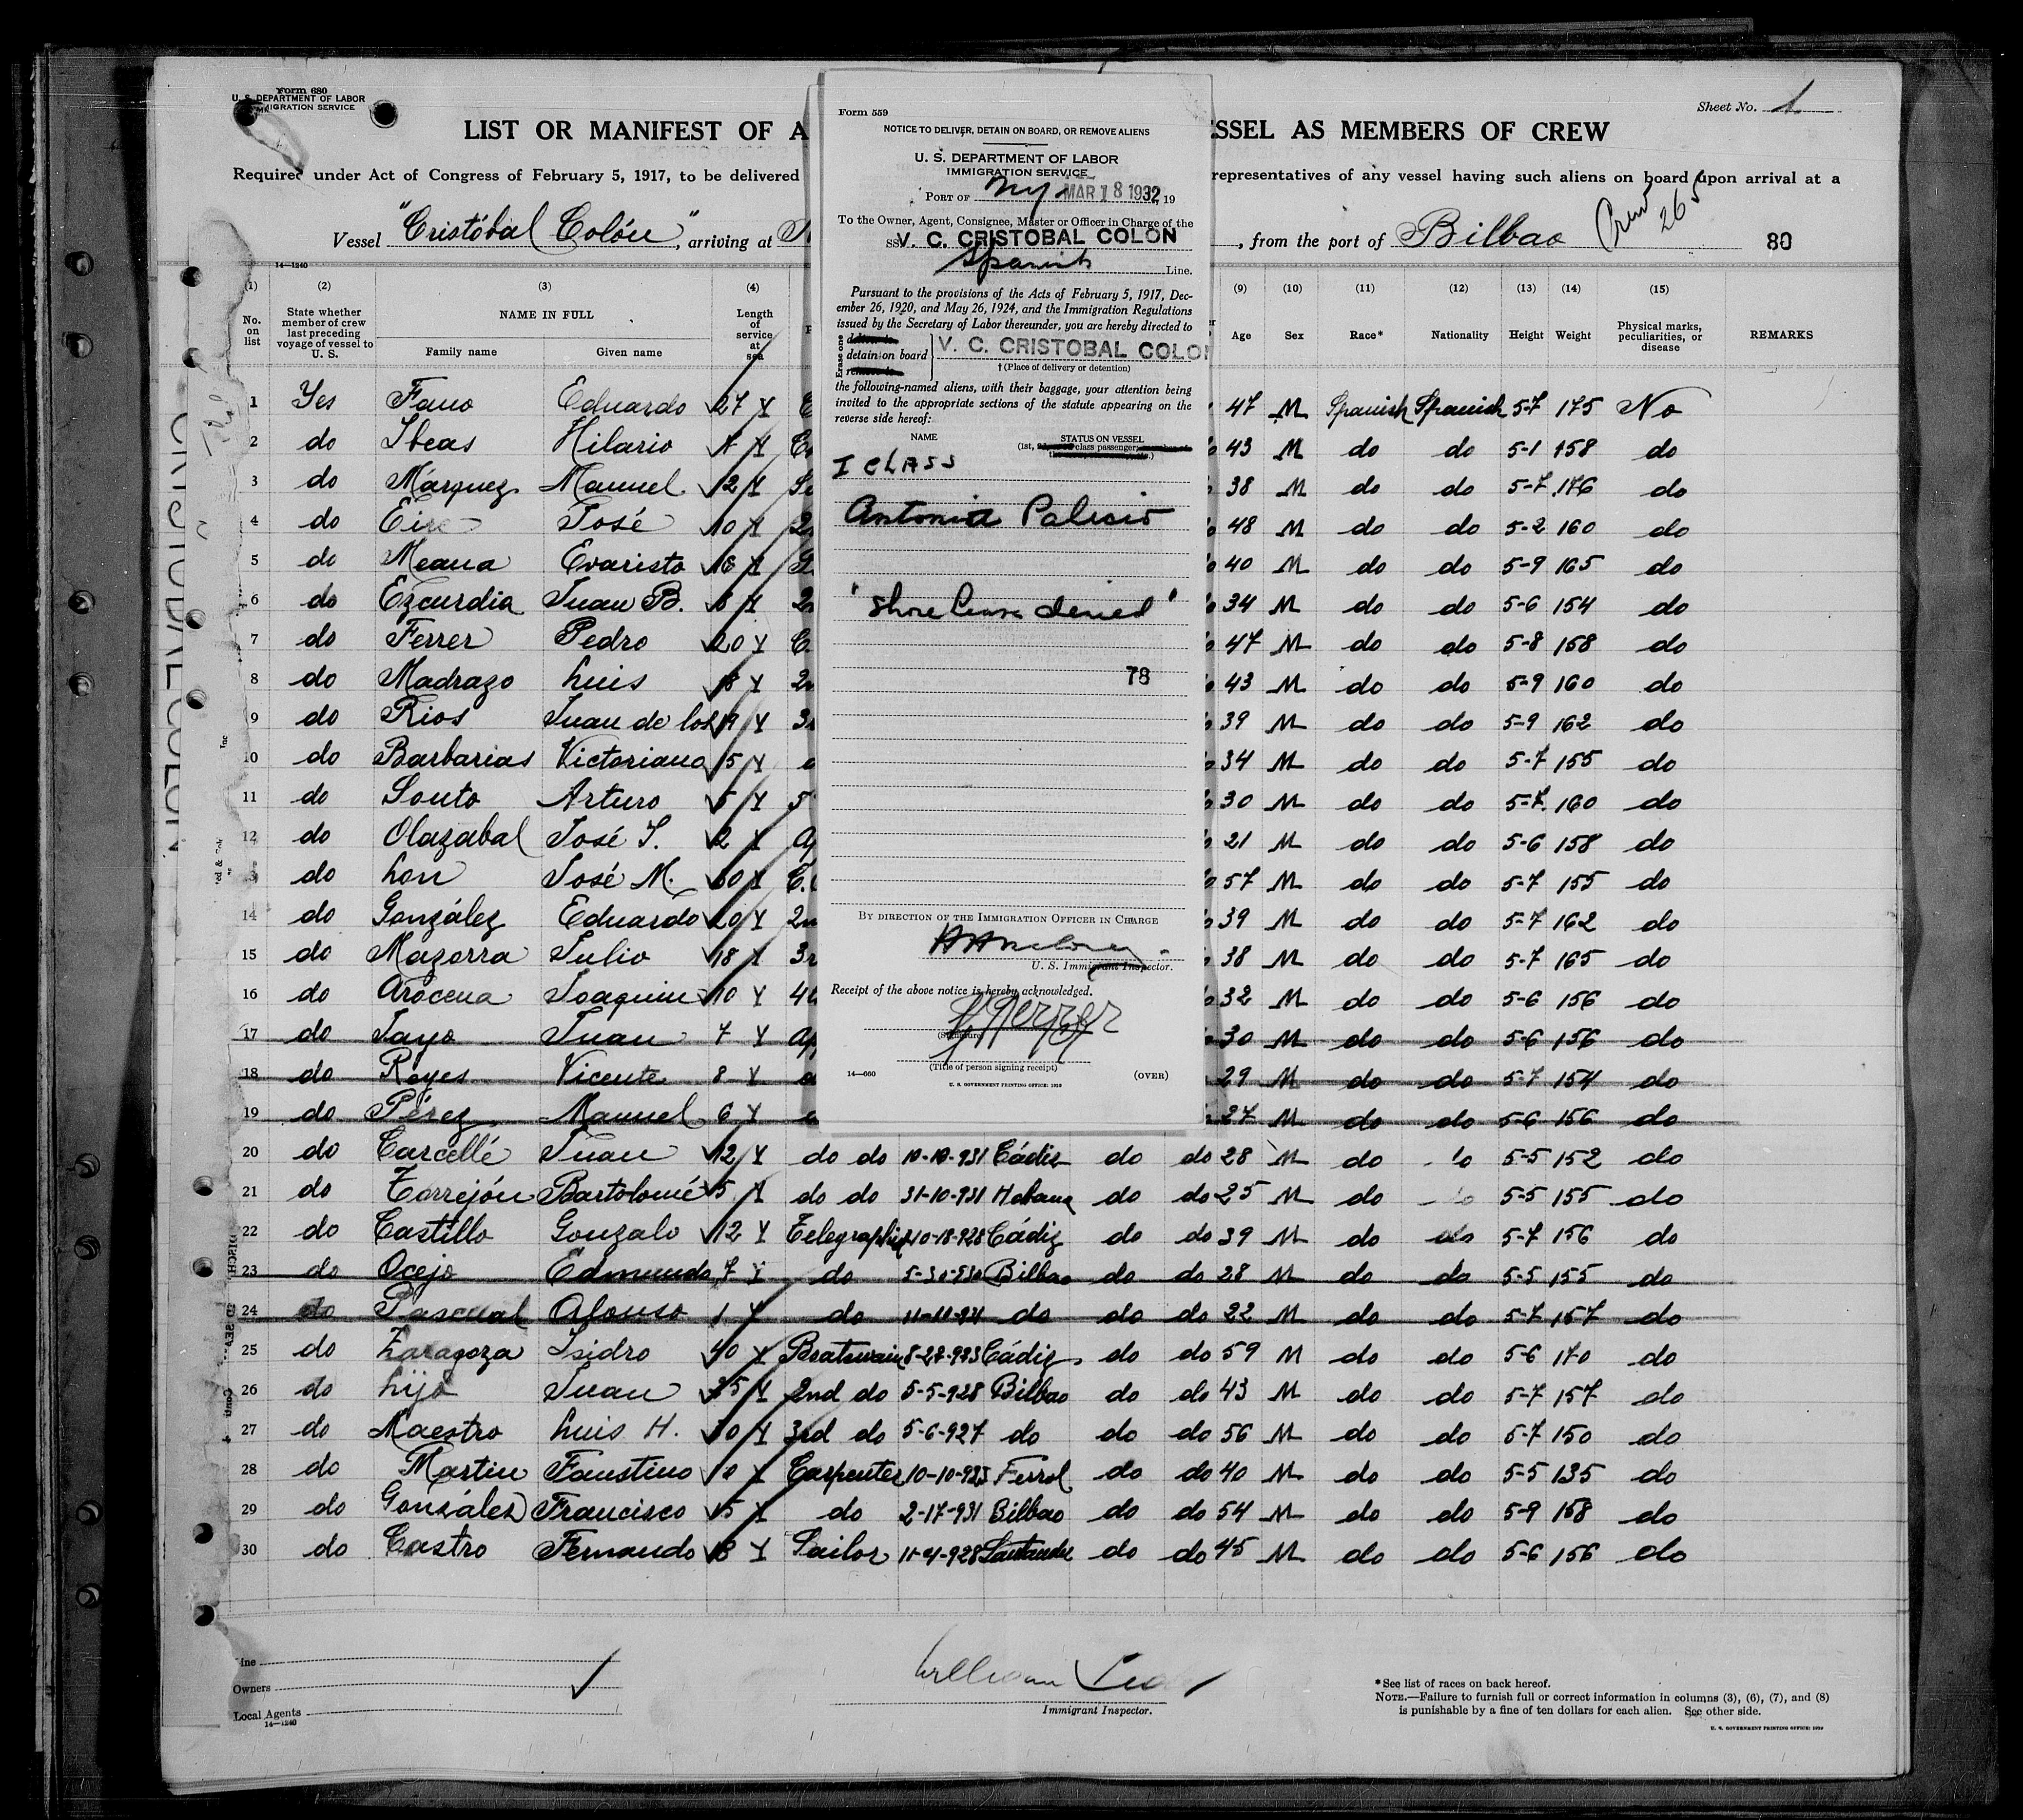 Form 680
U. S. DEPARTMENT OF LABOR
IMMIGRATION SERVICE
Sheet No. 1
LIST OR MANIFEST OF A
SSEL AS MEMBERS OF CREW
Required under Act of Congress of February 5, 1917, to be delivered
representatives of any vessel having such aliens on board upon arrival at a
Vessel "Cristóbal Colón", arriving at
, from the port of Bilbao
Crew 265
80
14—1240
(1) (2) (3) (4)
No. on list
State whether member of crew last preceding voyage of vessel to U. S.
NAME IN FULL
Family name Given name
Length of service at sea
(9) (10) (11) (12) (13) (14) (15)
Age Sex Race* Nationality Height Weight Physical marks, peculiarities, or disease REMARKS
Form 559
NOTICE TO DELIVER, DETAIN ON BOARD, OR REMOVE ALIENS
U. S. DEPARTMENT OF LABOR
IMMIGRATION SERVICE
PORT OF NY MAR 18 1932, 19
To the Owner, Agent, Consignee, Master or Officer in Charge of the
SS V. C. CRISTOBAL COLON
Spanish Line.
Pursuant to the provisions of the Acts of February 5, 1917, Dec-
ember 26, 1920, and May 26, 1924, and the Immigration Regulations
issued by the Secretary of Labor thereunder, you are hereby directed to
Erase one
detain on board
V. C. CRISTOBAL COLON
† (Place of delivery or detention)
the following-named aliens, with their baggage, your attention being
invited to the appropriate sections of the statute appearing on the
reverse side hereof:
NAME STATUS ON VESSEL
(1st, class passenger,
I CLASS
Antonia Palicio
"Shore leave denied"
78
BY DIRECTION OF THE IMMIGRATION OFFICER IN CHARGE
U. S. Immigrant Inspector.
Receipt of the above notice is hereby acknowledged.
(Signature)
(Title of person signing receipt)
14—660
(OVER)
U. S. GOVERNMENT PRINTING OFFICE: 1929
1 Yes Fano Eduardo 27 Y 47 M Spanish Spanish 5-7 175 No
2 do Ibeas Hilario Y 43 M do do 5-1 158 do
3 do Márquez Manuel 12 Y 38 M do do 5-7 176 do
4 do José 10 Y 48 M do do 5-2 160 do
5 do Meana Evaristo 16 Y 40 M do do 5-9 165 do
6 do Ezcurdia Juan B. 8 Y 34 M do do 5-6 154 do
7 do Ferrer Pedro 20 Y 47 M do do 5-8 158 do
8 do Madrazo Luis 18 Y 43 M do do 5-9 160 do
9 do Rios Juan de los 19 Y 39 M do do 5-9 162 do
10 do Barbarias Victoriano 15 Y 34 M do do 5-7 155 do
11 do Souto Arturo 5 Y 30 M do do 5-7 160 do
12 do Olazabal José I. 2 Y 21 M do do 5-6 158 do
do Lon José M. 30 Y 57 M do do 5-7 155 do
14 do González Eduardo 20 Y 39 M do do 5-7 162 do
15 do Mazorra Julio 18 Y 38 M do do 5-7 165 do
16 do Arocena Joaquin 10 Y 32 M do do 5-6 156 do
17 do Jayo Juan 7 Y 30 M do do 5-6 156 do
18 do Reyes Vicente 8 Y 29 M do do 5-7 154 do
19 do Pérez Manuel 6 Y 27 M do do 5-6 156 do
20 do Carcellé Juan 12 Y do do 10-10-931 Cádiz do do 28 M do do 5-5 152 do
21 do Torrejón Bartolomé 5 Y do do 31-10-931 Habana do do 25 M do do 5-5 155 do
22 do Castillo Gonzalo 12 Y Telegraphist 10-18-928 Cádiz do do 39 M do do 5-7 156 do
23 do Ocejo Edmundo 7 Y do 5-30-930 Bilbao do do 28 M do do 5-5 155 do
24 do Pascual Alonso 1 Y do 11-11-931 do do do 22 M do do 5-7 157 do
25 do Zaragoza Isidro 40 Y Boatswain 8-27-923 Cádiz do do 59 M do do 5-6 170 do
26 do Lijo Juan 25 Y 2nd do 5-5-928 Bilbao do do 43 M do do 5-7 157 do
27 do Maestro Luis H. 30 Y 3rd do 5-6-927 do do do 56 M do do 5-7 150 do
28 do Martin Faustino 10 Y Carpenter 10-10-923 Ferrol do do 40 M do do 5-5 135 do
29 do González Francisco 15 Y do 2-17-931 Bilbao do do 54 M do do 5-9 158 do
30 do Castro Fernando 18 Y Sailor 11-4-928 Santander do do 45 M do do 5-6 156 do
Line
Owners
Local Agents
14—1240
William
Immigrant Inspector.
*See list of races on back hereof.
NOTE.—Failure to furnish full or correct information in columns (3), (6), (7), and (8)
is punishable by a fine of ten dollars for each alien. See other side.
U. S. GOVERNMENT PRINTING OFFICE: 1929